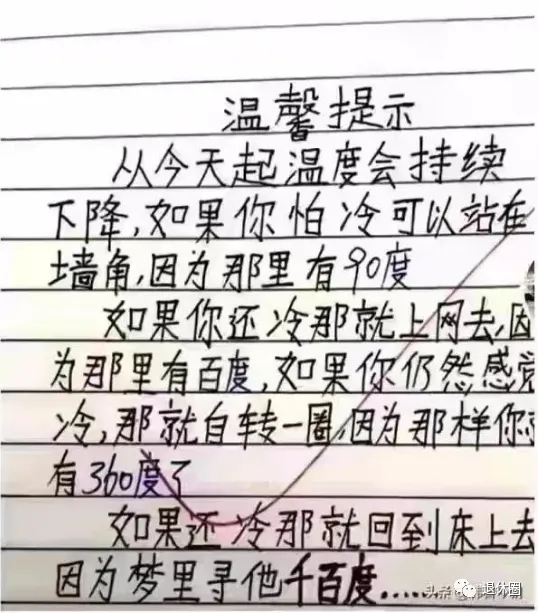 温馨提示
从今天起温度会持续
下降,如果你怕冷可以站在
墙角,因为那里有90度
如果你还冷那就上网去,因
为那里有百度,如果你仍然感觉
冷,那就自转一圈,因为那样你
有360度了
如果还冷那就回到床上去
因为梦里寻他千百度......
退休圈